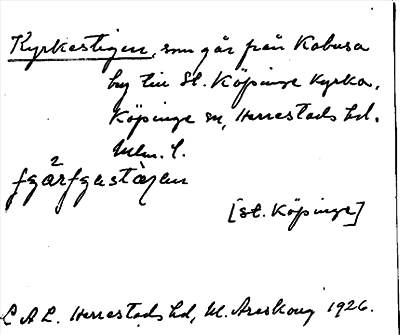 Kyrkestigen, som går från Kabusa
by till St. Köpinge kyrka.
Köpinge sn, Herrestads hd.
Mlm. l.
[St. Köpinge]
L A L. Herrestads hd, M. Areskoug 1926.